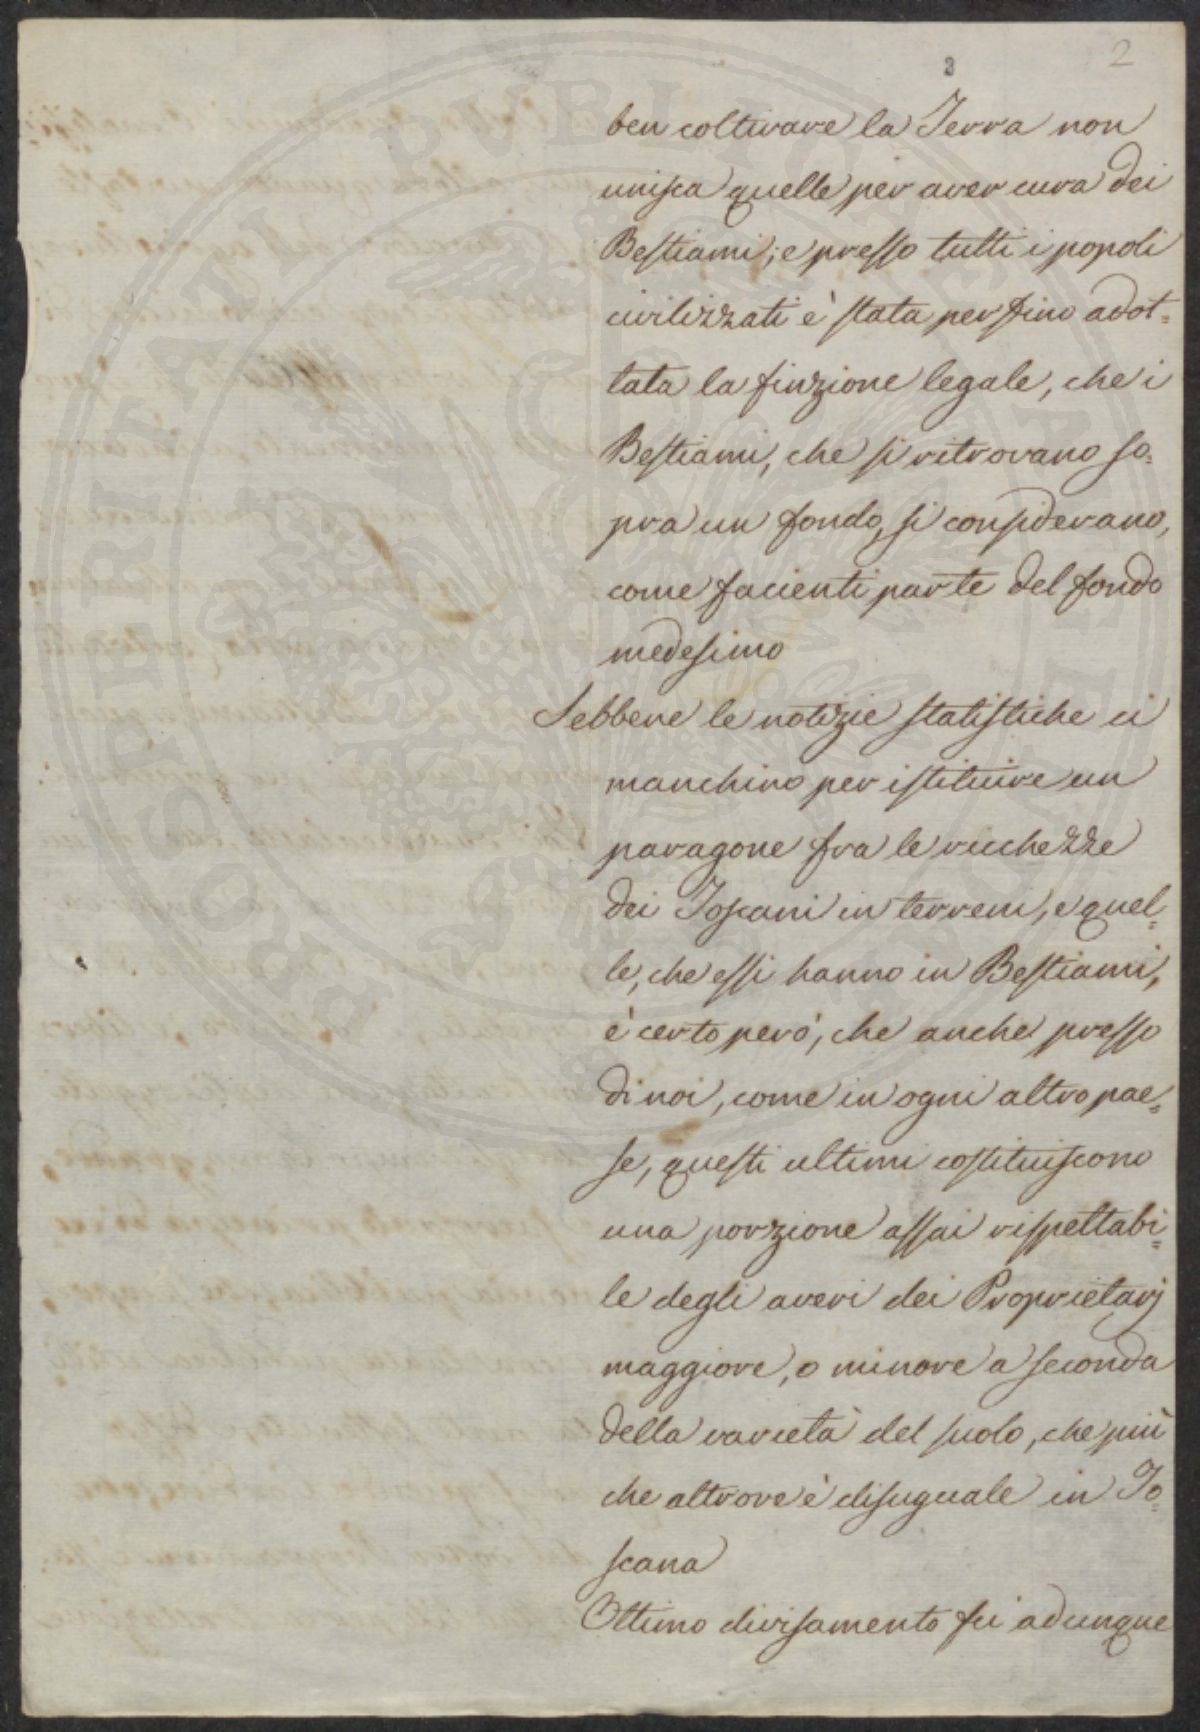 2
3
ben coltivare la Terra non
unisca quelle per aver cura dei
Bestiami; e presso tutti i popoli
civilizzati è stata perfino adot=
tata la finzione legale, che i
Bestiami, che si ritrovano so=
pra un fondo, si considerano,
come facienti parte del fondo
medesimo
Sebbene le notizie statistiche ci
manchino per istituire un
paragone fra le ricchezze
dei Toscani in terreni, e quel=
le, che essi hanno in Bestiami,
è certo però, che anche presso
di noi, come in ogni altro pae=
se, questi ultimi costituiscono
una porzione assai rispettabi=
le degli averi dei Proprietarj
maggiore, o minore a seconda
della varietà del suolo, che più
che altrove è disuguale in To=
scana
Ottimo divisamento fu adunque
PROSPERITATI PUBLICAE